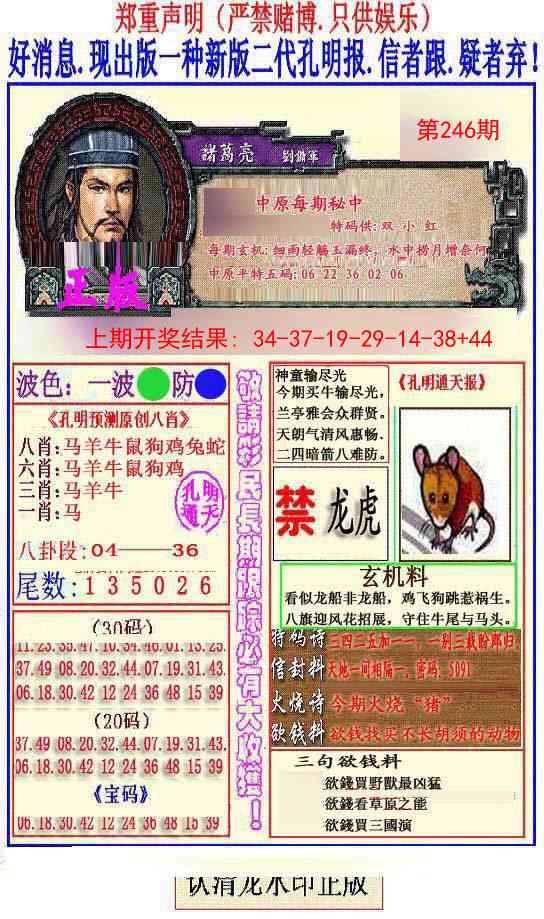 郑重声明（严禁赌博.只供娱乐）
好消息.现出版一种新版二代孔明报.信者跟.疑者弃!
第246期
諸葛亮 劉備軍
中原每期秘中
特码供:双 小 红
每期玄机:细雨轻觞玉漏终，水中捞月增奈何
中原平特五码:06 22 36 02 06
正版
上期开奖结果: 34-37-19-29-14-38+44
波色: 一波 防
《孔明预测原创八肖》
八肖:马羊牛鼠狗鸡兔蛇
六肖:马羊牛鼠狗鸡
三肖:马羊牛
一肖:马
孔明通天
八卦段:04——36
尾数:135026
(30码)
11.23.35.47.10.34.46.01.13.25.
37.49 08.20.32.44.07.19.31.43.
06.18.30.42 12 24 36 48 15 39
(20码)
37.49 08.20.32.44.07.19.31.43.
06.18.30.42 12 24 36 48 15 39
《宝码》
06.18.30.42 12 24 36 48 15 39
敬請彩民長期跟踪必有大收獲!
神童输尽光
今期买牛输尽光，
兰亭雅会众群贤。
天朗气清风惠畅.
二四暗箭八难防。
《孔明通天报》
禁 龙虎
玄机料
看似龙船非龙船，鸡飞狗跳惹祸生。
八旗迎风花招展，守住牛尾与马头。
特码诗 三四二五加一一，一别三载盼郎归
信封料 天地一间相隔一，密码，5091
火烧诗 今期火烧“猪”
欲钱料 欲钱找买不长胡须的动物
三句欲钱料
欲錢買野獸最凶猛
欲錢看草原之能
欲錢買三國演
认清龙水印正版